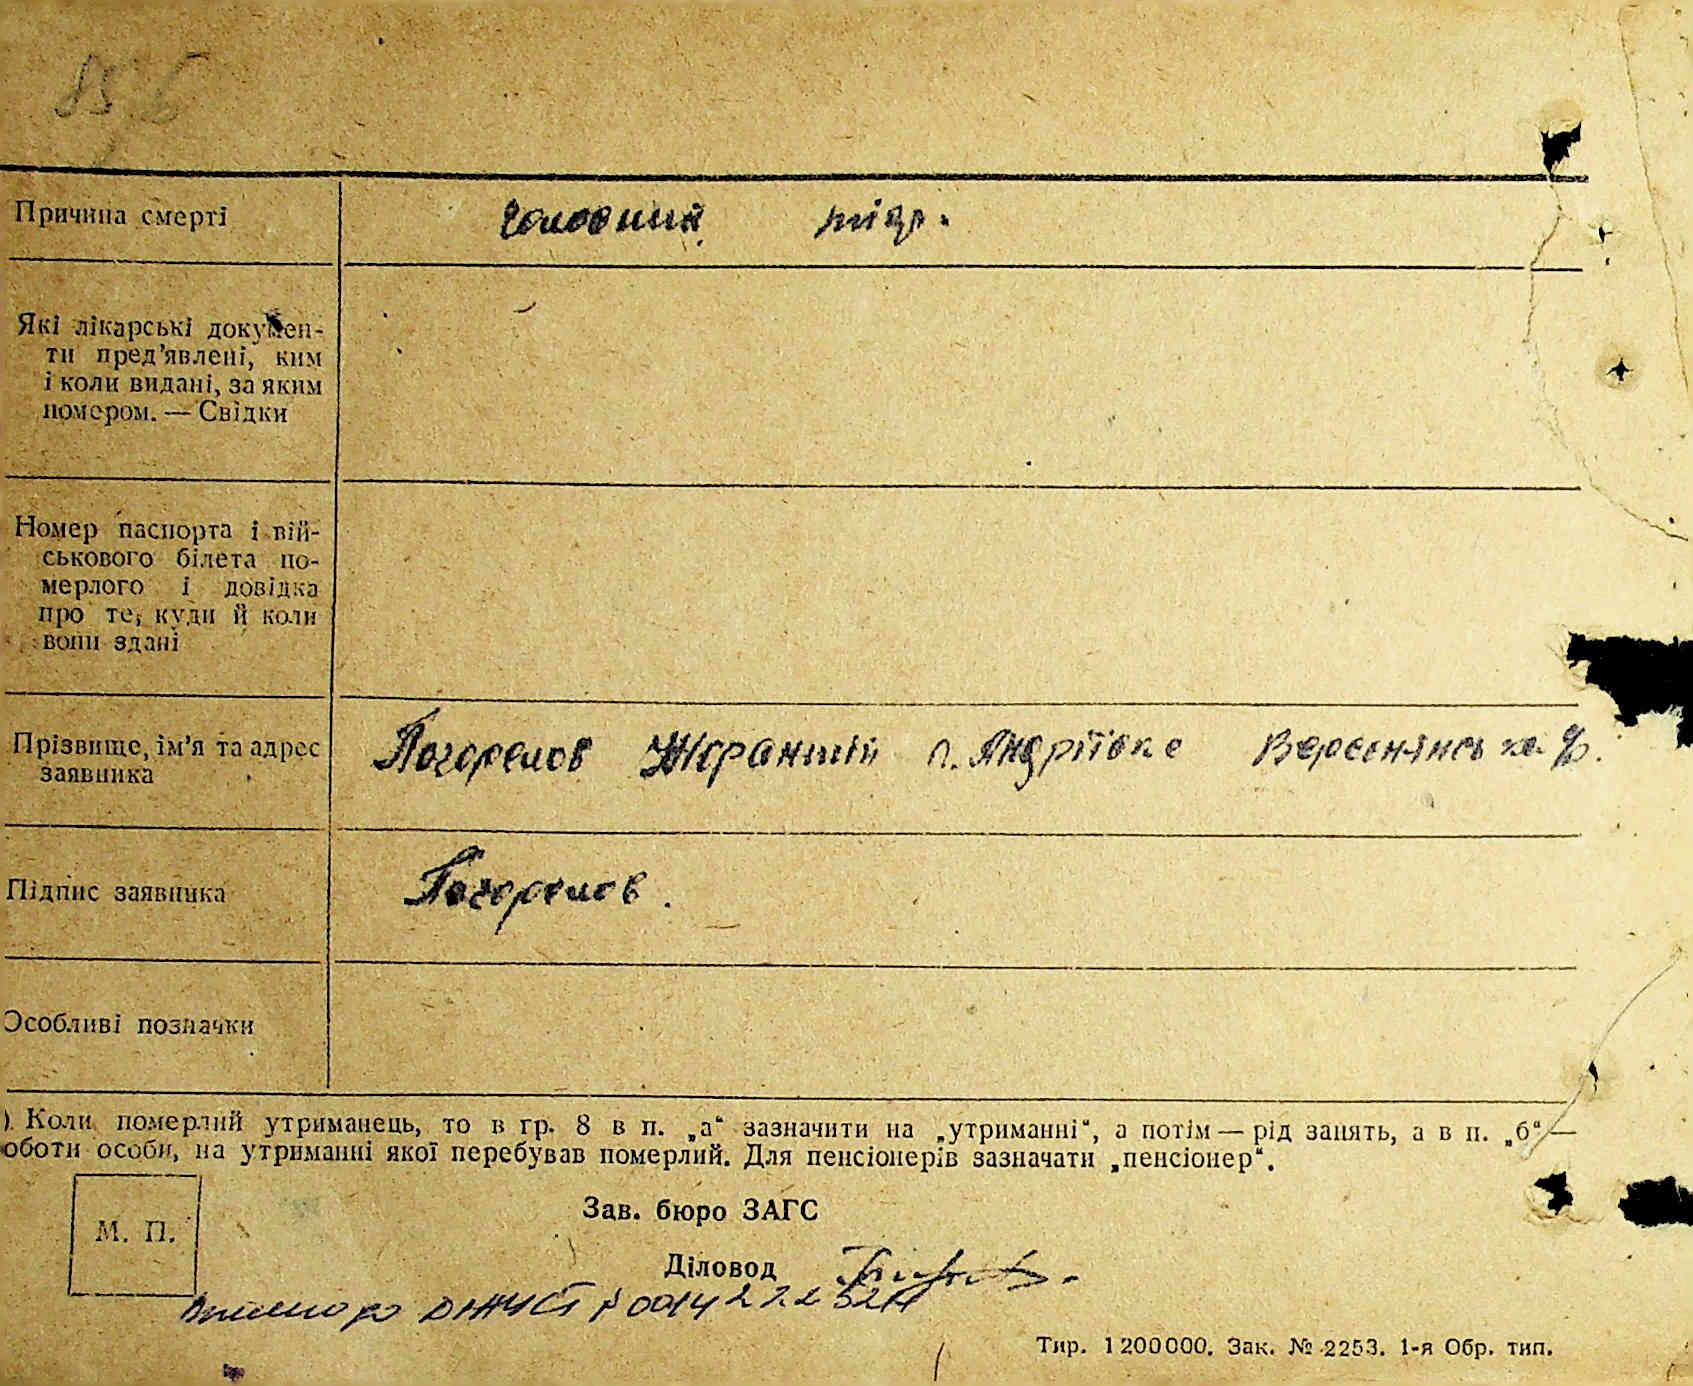 Причина смерті
Які лікарські докумен-
ти пред’явлені, ким
і коли видані, за яким
номером. — Свідки
Номер паспорта і вій-
ськового білета по-
мерлого і довідка
про те, куди й коли
вони здані
Прізвище, ім’я та адрес
заявника
Погорелов с. Андріївке
Підпис заявника
Погорелов.
Особливі позначки
) Коли померлий утриманець, то в гр. 8 в п. „а“ зазначити на „утриманні“, а потім — рід занять, а в п. „б“ —
оботи особи, на утриманні якої перебував померлий. Для пенсіонерів зазначати „пенсіонер“.
М. П.
Зав. бюро ЗАГС
Діловод
Тир. 1 200 000. Зак. № 2253. 1-я Обр. тип.